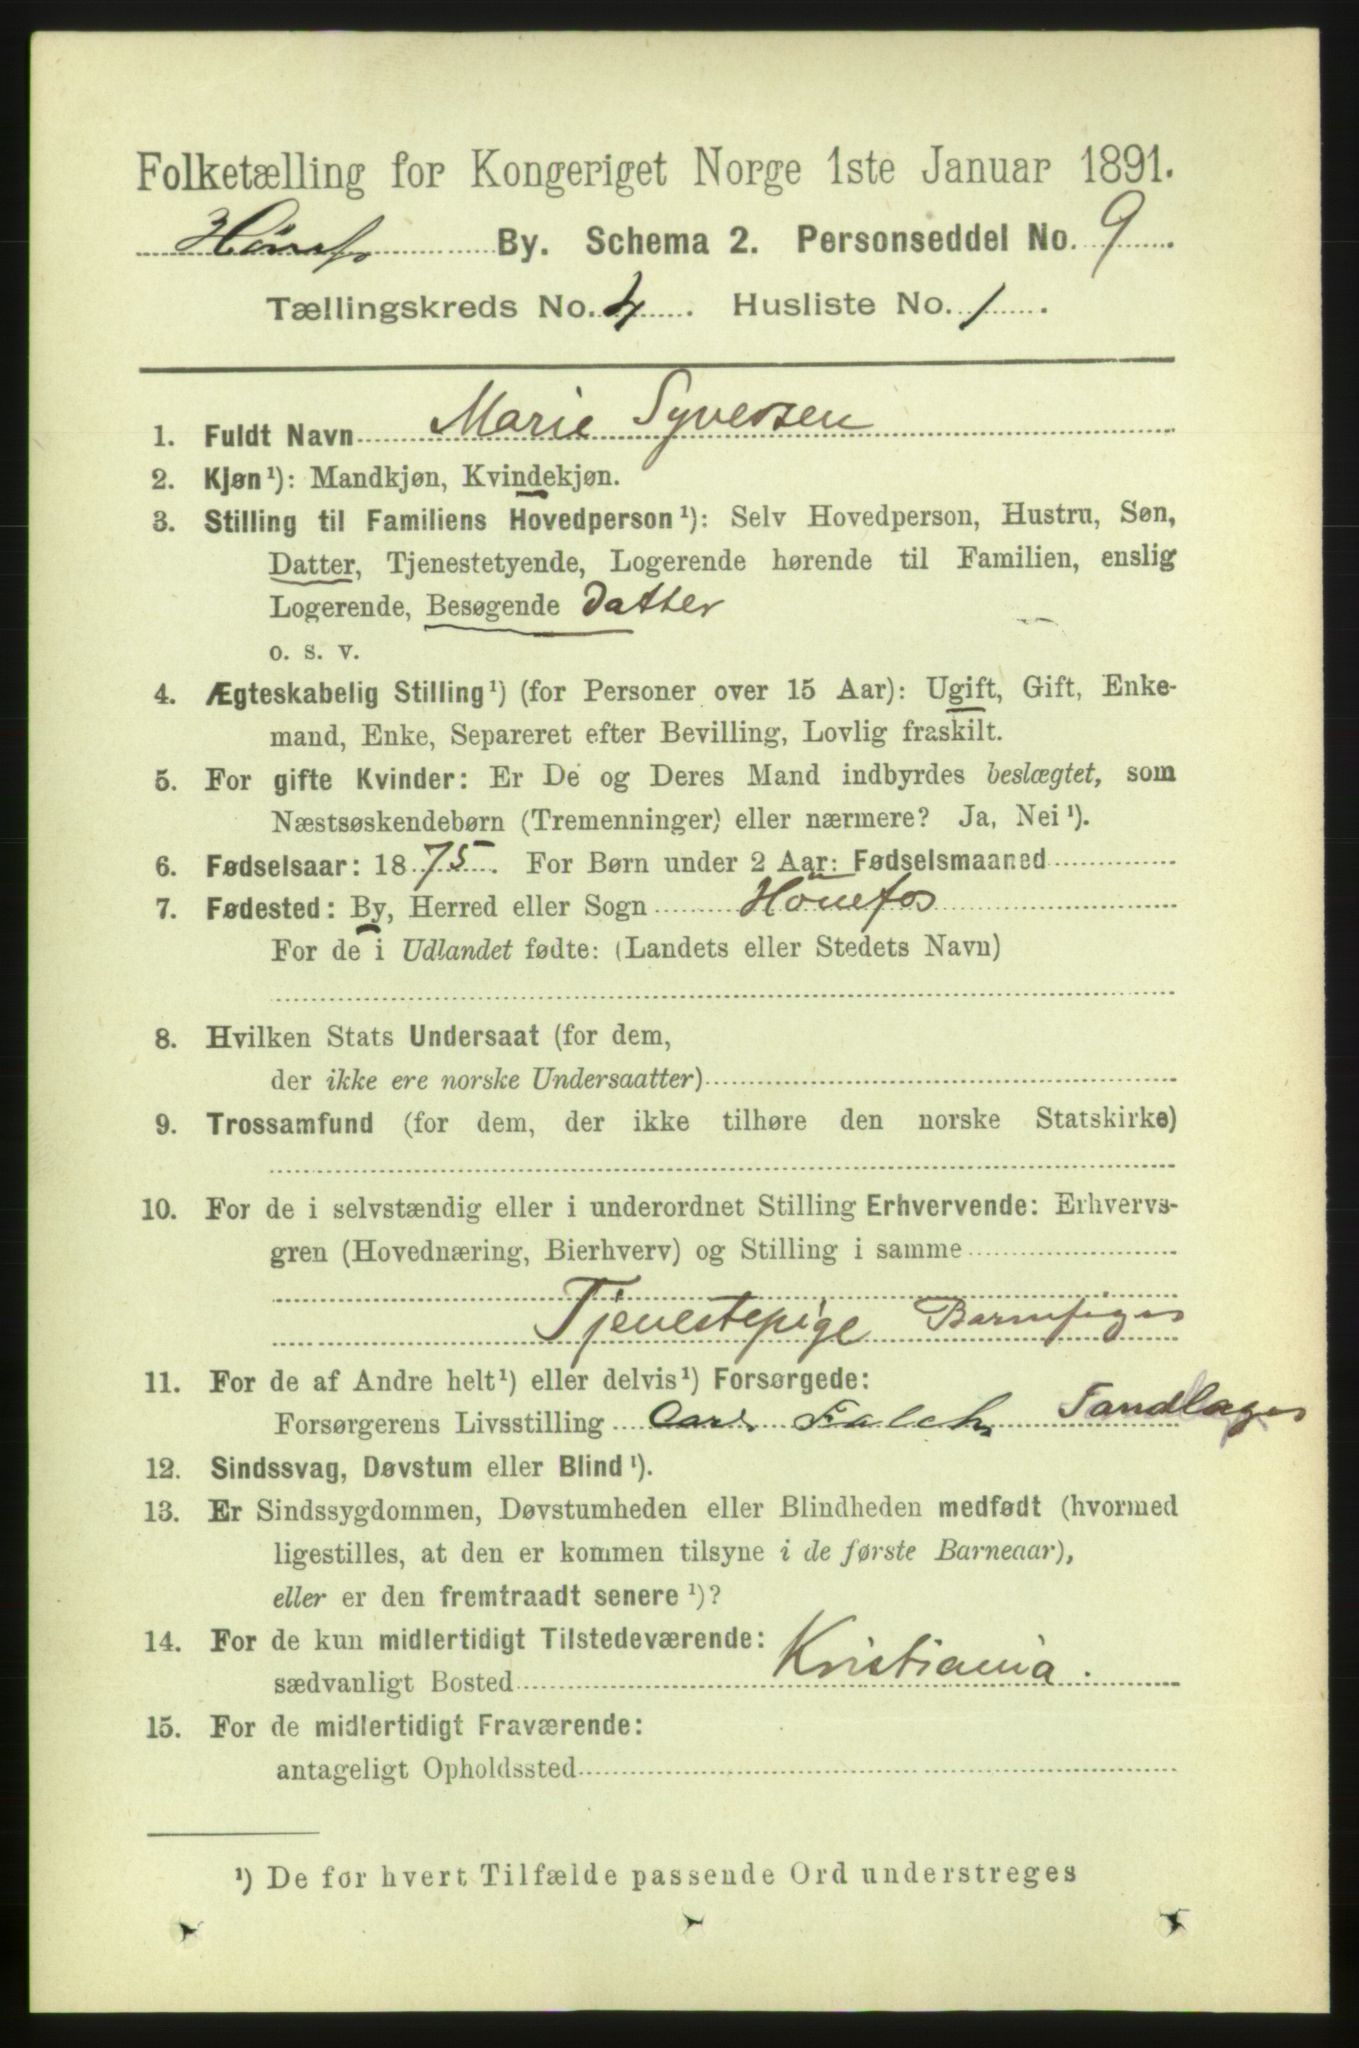 Folketælling for Kongeriget Norge 1ste Januar 1891.
Hønefos By. Schema 2. Personseddel No. 9
Tællingskreds No. 4. Husliste No. 1.
1. Fuldt Navn Marie Syversen
2. Kjøn¹): Mandkjøn, Kvindekjøn.
3. Stilling til Familiens Hovedperson¹): Selv Hovedperson, Hustru, Søn,
Datter, Tjenestetyende, Logerende hørende til Familien, enslig
Logerende, Besøgende Datter
o. s. v.
4. Ægteskabelig Stilling¹) (for Personer over 15 Aar): Ugift, Gift, Enke-
mand, Enke, Separeret efter Bevilling, Lovlig fraskilt.
5. For gifte Kvinder: Er De og Deres Mand indbyrdes beslægtet, som
Næstsøskendebørn (Tremenninger) eller nærmere? Ja, Nei¹).
6. Fødselsaar: 1875. For Børn under 2 Aar: Fødselsmaaned
7. Fødested: By, Herred eller Sogn Hønefos
For de i Udlandet fødte: (Landets eller Stedets Navn)
8. Hvilken Stats Undersaat (for dem,
der ikke ere norske Undersaatter)
9. Trossamfund (for dem, der ikke tilhøre den norske Statskirke)
10. For de i selvstændig eller i underordnet Stilling Erhvervende: Erhvervs-
gren (Hovednæring, Bierhverv) og Stilling i samme
Tjenestepige
11. For de af Andre helt¹) eller delvis¹) Forsørgede:
Forsørgerens Livsstilling Carl Falch Tandlæge
12. Sindssvag, Døvstum eller Blind¹).
13. Er Sindssygdommen, Døvstumheden eller Blindheden medfødt (hvormed
ligestilles, at den er kommen tilsyne i de første Barneaar),
eller er den fremtraadt senere¹)?
14. For de kun midlertidigt Tilstedeværende:
sædvanligt Bosted Kristiania.
15. For de midlertidigt Fraværende:
antageligt Opholdssted
¹) De for hvert Tilfælde passende Ord understreges